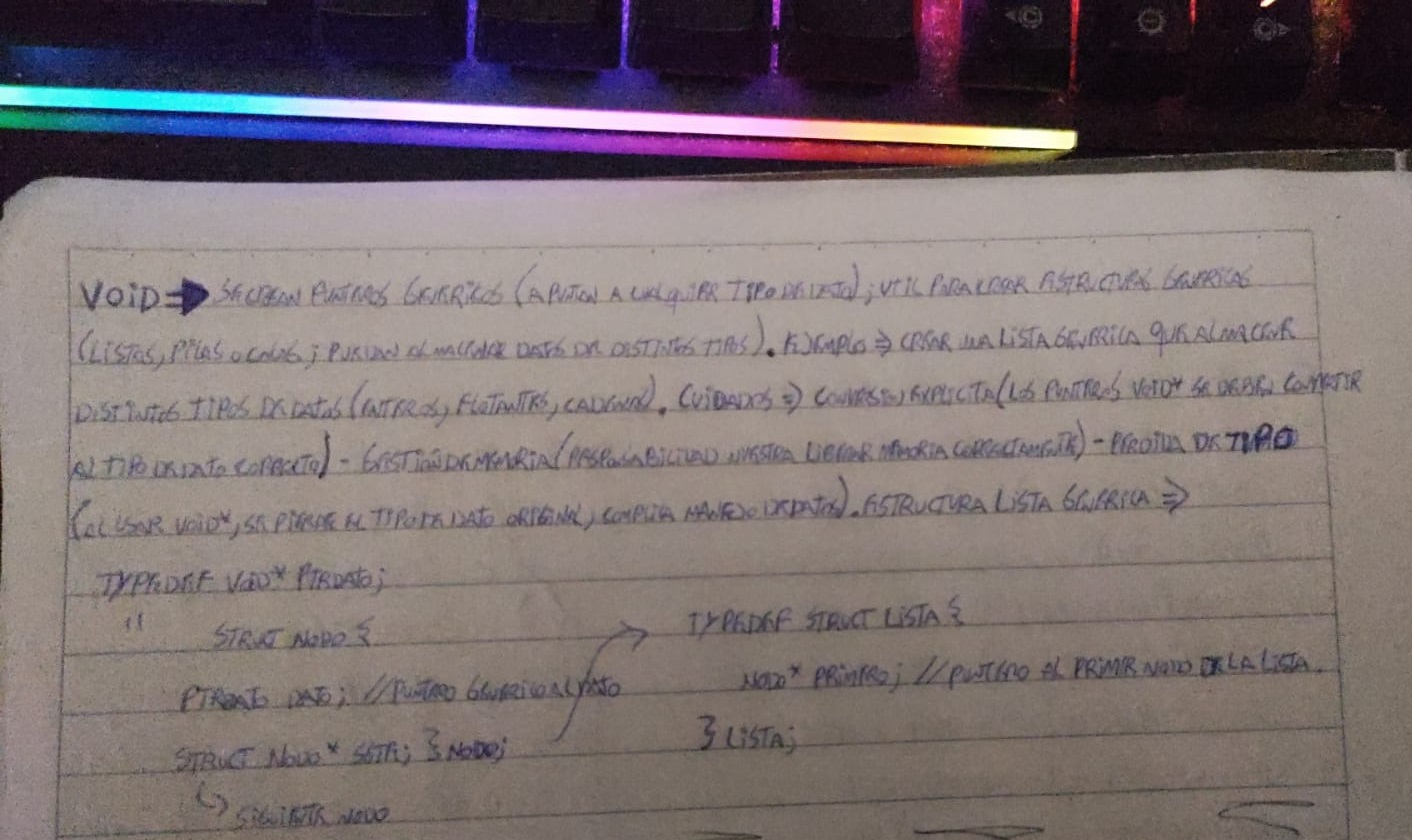 VOID ⇒ SE CREAN PUNTEROS GENERICOS (APUNTAN A CUALQUIER TIPO DE DATO); UTIL PARA CREAR ESTRUCTURAS GENERICAS
(LISTAS, PILAS O COLAS; PUEDAN ALMACENAR DATOS DE DISTINTOS TIPOS). EJEMPLO ⇒ CREAR UNA LISTA GENERICA QUE ALMACENE
DISTINTOS TIPOS DE DATOS (ENTEROS, FLOTANTES, CADENAS). CUIDADOS ⇒ CONVERSION EXPLICITA (LOS PUNTEROS VOID* SE DEBEN CONVERTIR
AL TIPO DE DATO CORRECTO) - GESTIÓN DE MEMORIA (RESPONSABILIDAD NUESTRA LIBERAR MEMORIA CORRECTAMENTE) - PERDIDA DE TIPO
(AL USAR VOID*, SE PIERDE EL TIPO DE DATO ORIGINAL, COMPLICA MANEJO DE DATOS). ESTRUCTURA LISTA GENERICA ⇒
TYPEDEF VOID* PTRDATO;
" STRUCT NODO {
PTRDATO DATO; //PUNTERO GENERICO AL DATO
STRUCT NODO* SGTE; } NODO;
↳ SIGUIENTE NODO
TYPEDEF STRUCT LISTA {
NODO* PRIMERO; //PUNTERO AL PRIMER NODO DE LA LISTA.
} LISTA;